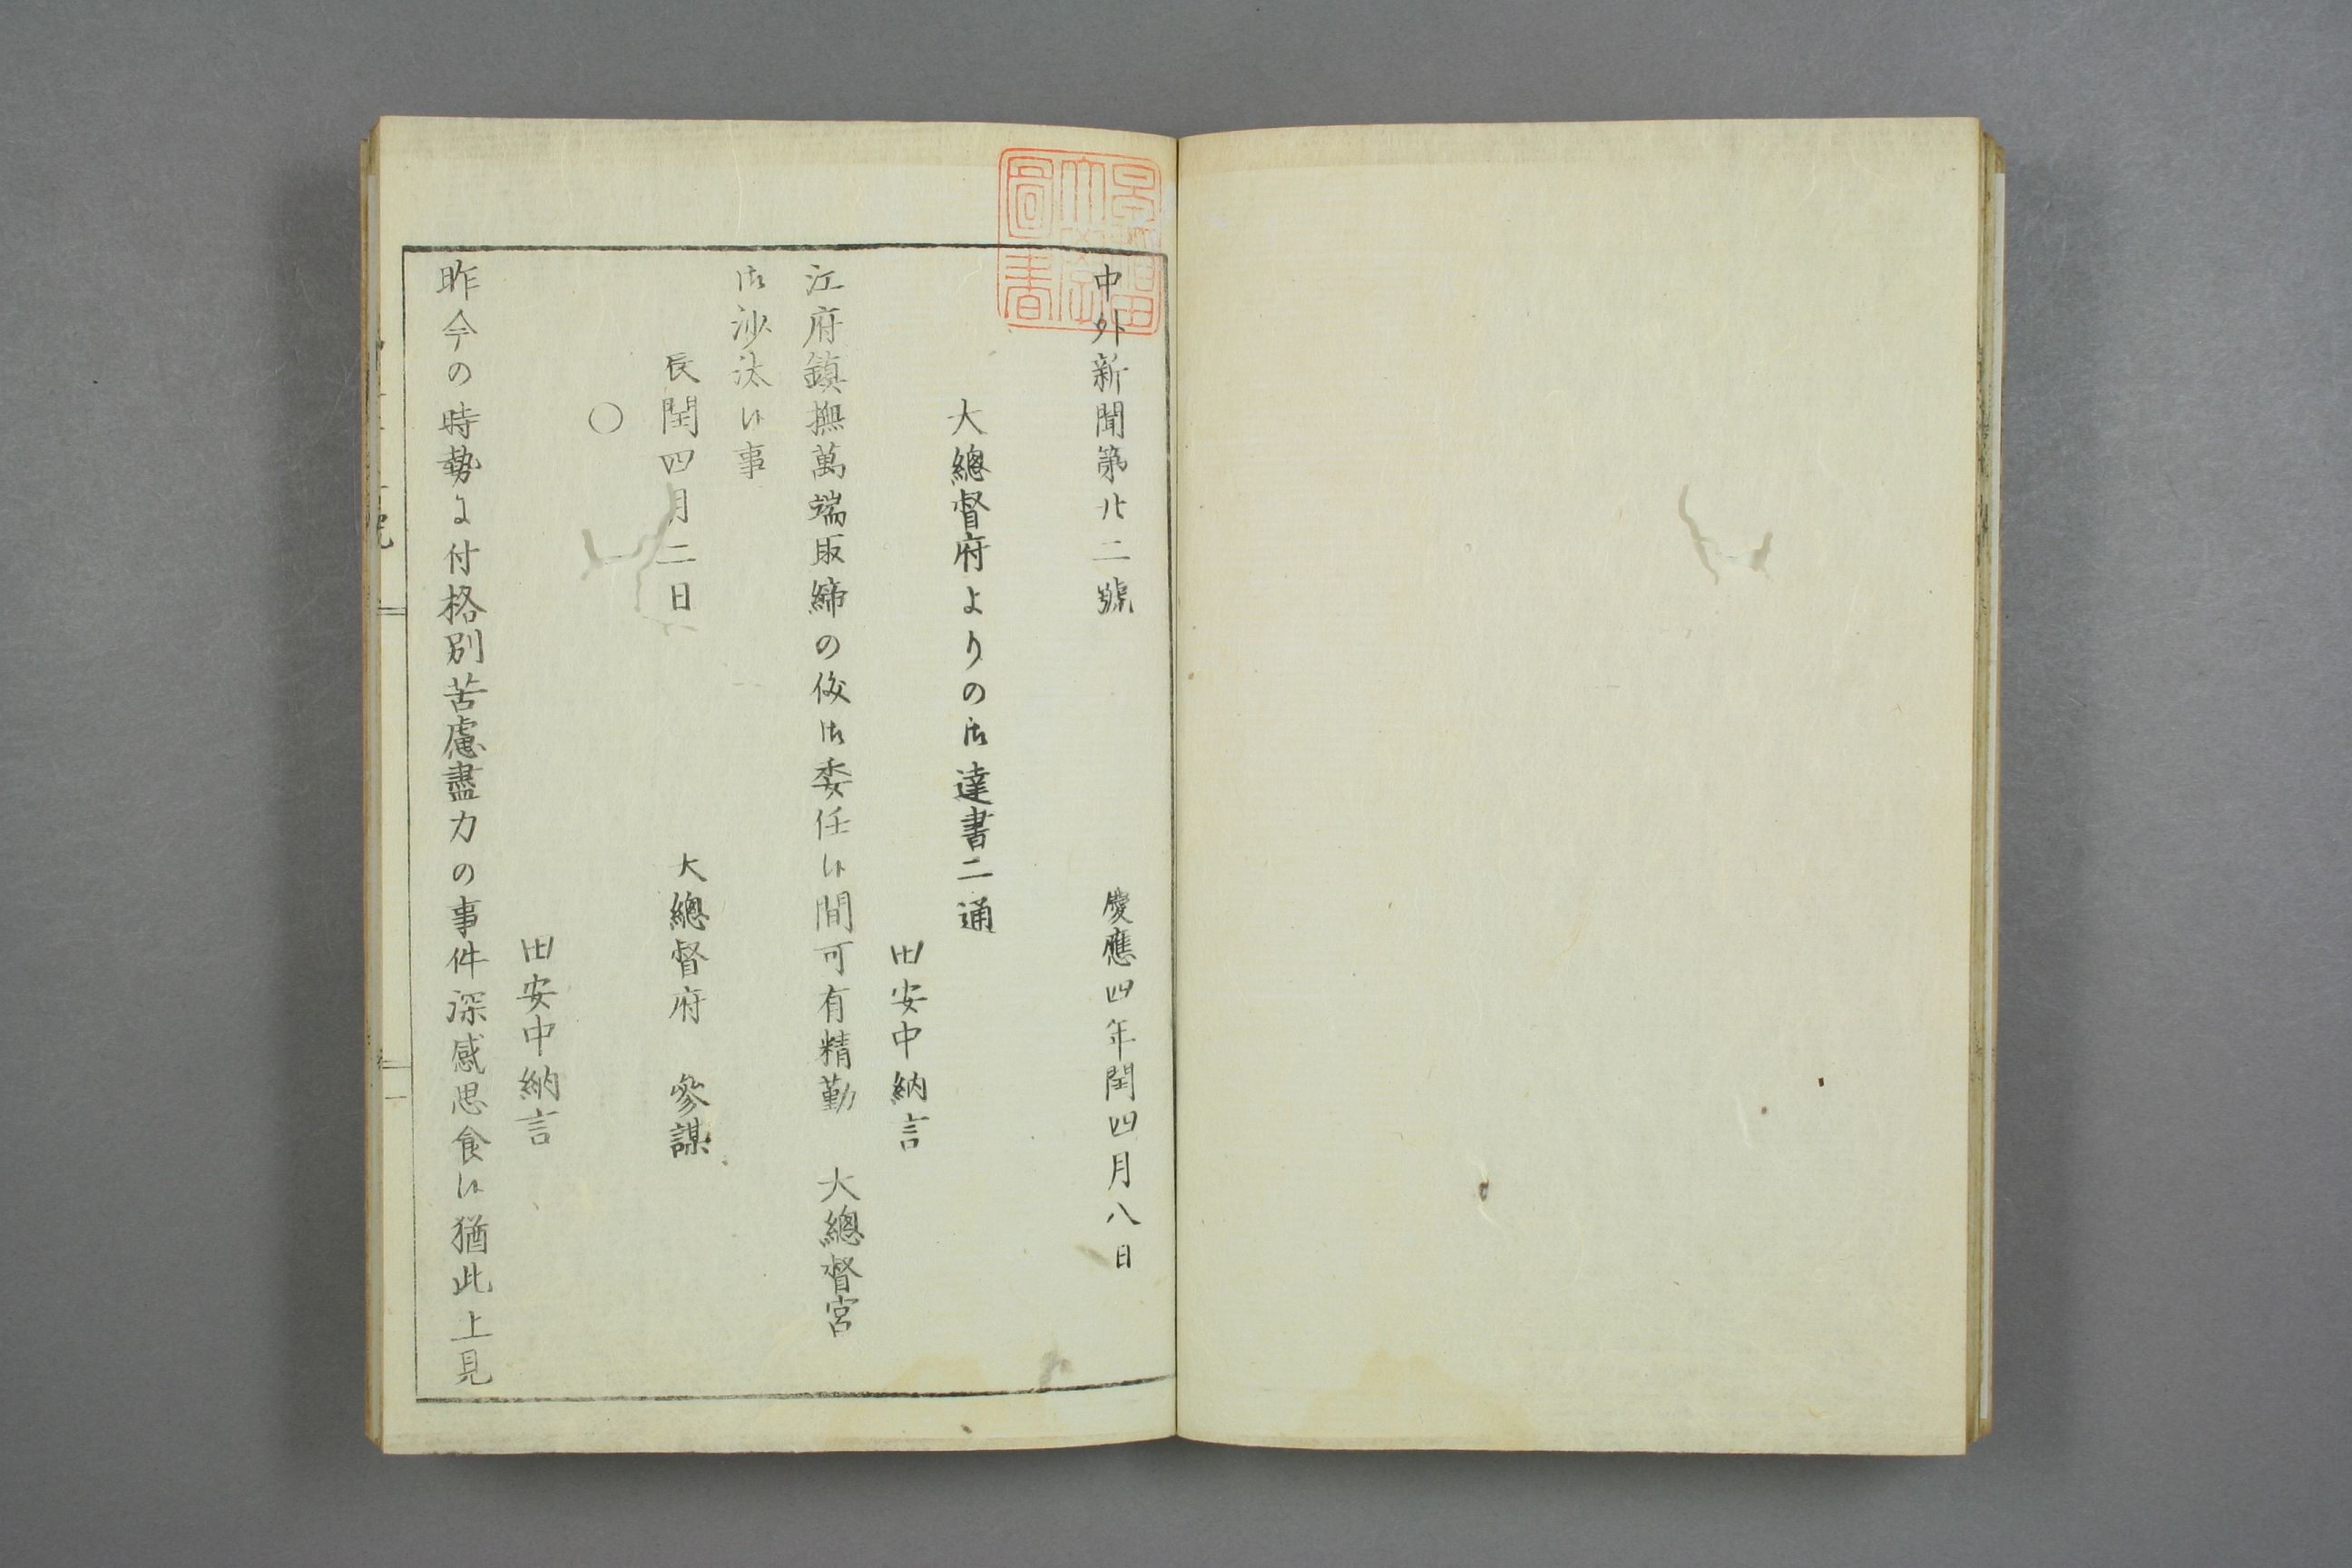 中外新聞第廿二號
慶應四年閏四月八日
大總督府よりの御達書二通
田安中納言
江府鎮撫萬端取締の儀御委任候間可有精勤 大總督宮
御沙汰候事
辰閏四月二日
大總督府 參謀
○
田安中納言
昨今の時勢に付格別苦慮盡力の事件深感思食候猶此上見